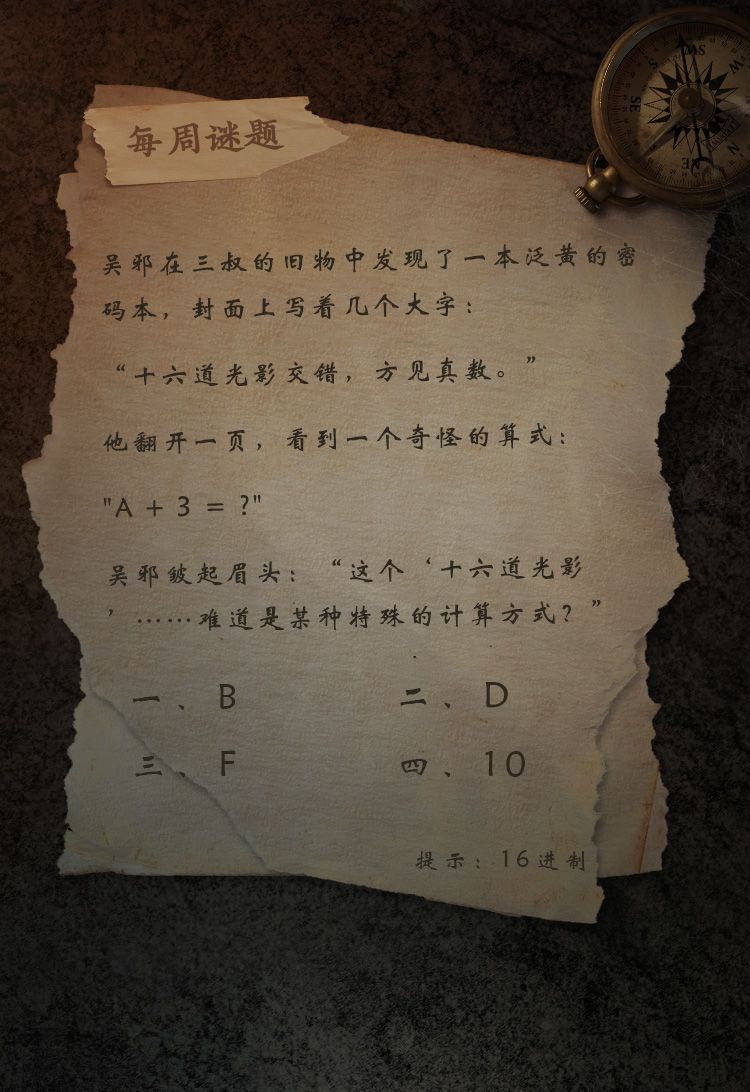 每周谜题
吴邪在三叔的旧物中发现了一本泛黄的密
码本，封面上写着几个大字：
“十六道光影交错，方见真数。”
他翻开一页，看到一个奇怪的算式：
"A + 3 = ?"
吴邪皱起眉头：“这个‘十六道光影
’……难道是某种特殊的计算方式？”
一、B
二、D
三、F
四、10
提示：16进制
SW
W
S
SE
N
NE